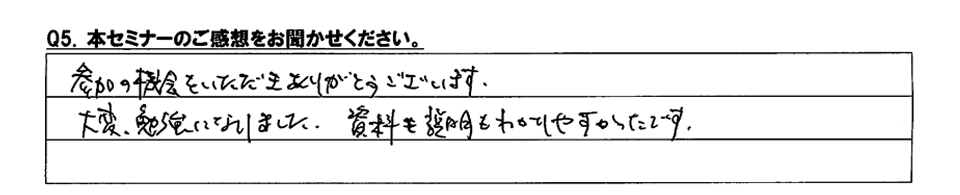 Q5. 本セミナーのご感想をお聞かせください。
参加の機会をいただきありがとうございます.
大変、勉強になりました. 資料も説明もわかりやすかったです.